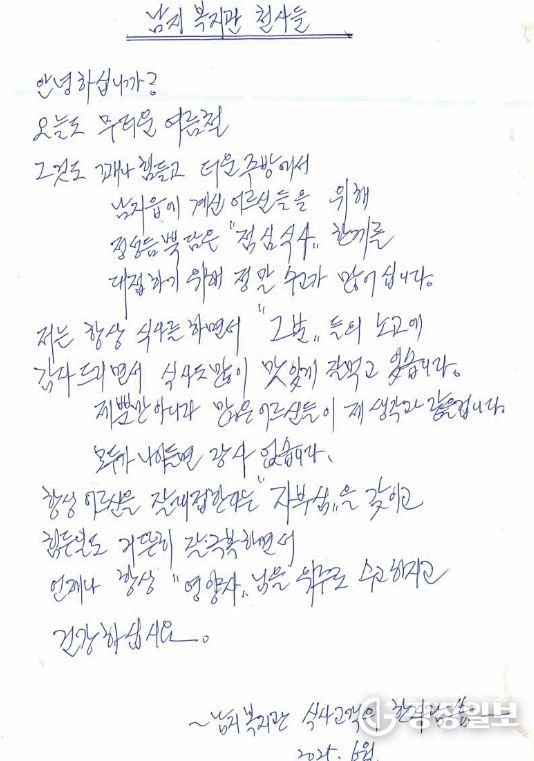 남지 복지관 천사들
안녕하십니까?
오늘도 무더운 여름철
그것도 꽤나 힘들고 더운 주방에서
남지읍에 계신 어르신들을 위해
정성듬뿍 담은 "점심식사" 한께를
대접하기 위해 정말 수고가 많이 십니다.
저는 항상 식사를 하면서 "그분" 들의 노고에
감사드리면서 식사도 많이 맛있게 잘먹고 있습니다.
제뿐만아니라 많은 어르신들이 제 생각과 같을겁니다.
모두가 나이들면 장사 없습니다.
항상 어르신을 잘대접한다는 "자부심"을 갖이고
힘든일도 거뜬히 잘극복하면서
언제나 항상 "영양사"님을 위주로 수고하시고
건강하십시요.
~남지복지관 식사고객인
경중일보
2025. 6월